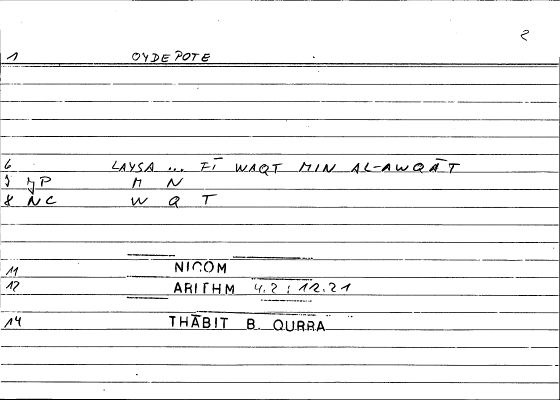 2
1 OYDEPOTE
6 LAYSA ... FĪ WAQT MIN AL-AWQĀT
JP M N
8 NC W Q T
11 NICOM
12 ARITHM 4.2 ; 12.21
14 THĀBIT B. QURRA